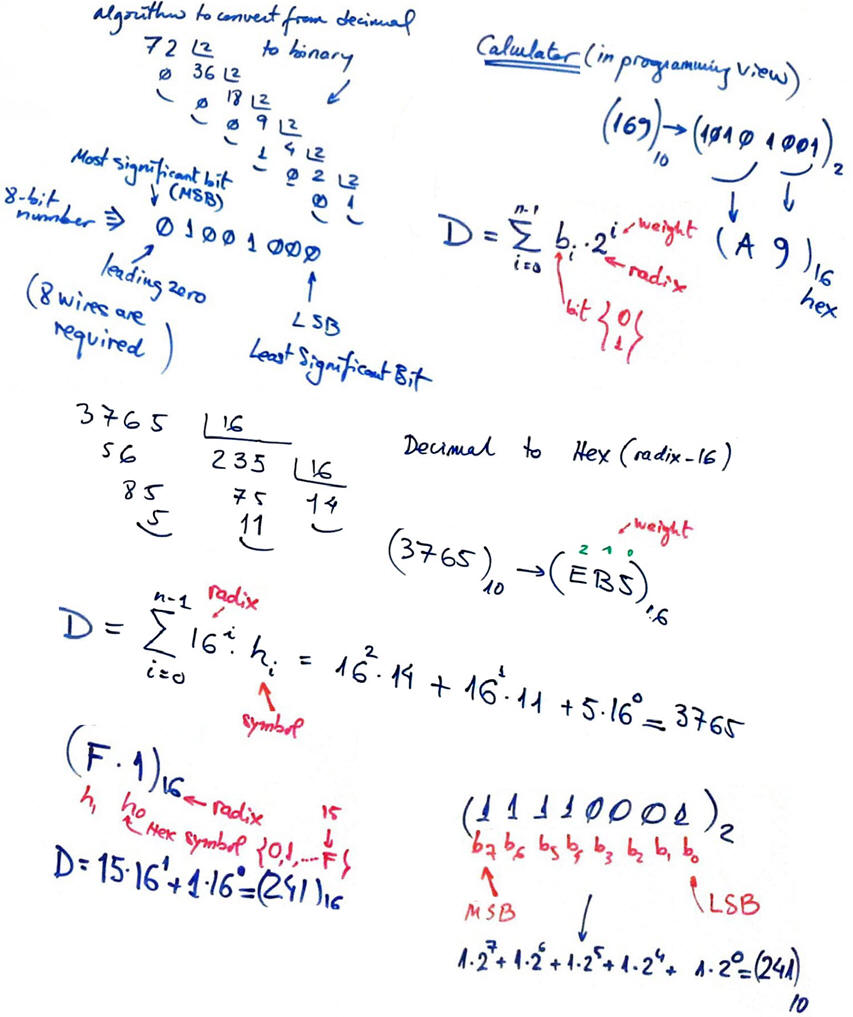 algorithm to convert from decimal
to binary
72 |2
0 36 |2
0 18 |2
0 9 |2
1 4 |2
0 2 |2
0 1
Most significant bit
(MSB)
8-bit
number ⇒ 0 1 0 0 1 0 0 0
leading zero
(8 wires are
required)
LSB
Least Significant Bit
Calculator (in programming view)
(169)₁₀ → (1010 1001)₂
(A 9)₁₆
hex
D = Σ_{i=0}^{n-1} bᵢ · 2ⁱ
weight
radix
bit {0
1}
3765 |16
56 235 |16
85 75 14
5 11
Decimal to Hex (radix-16)
weight
2 1 0
(3765)₁₀ → (EB5)₁₆
radix
D = Σ_{i=0}^{n-1} 16ⁱ · hᵢ = 16² · 14 + 16¹ · 11 + 5 · 16⁰ = 3765
symbol
(F · 1)₁₆ ← radix
h₁ h₀
15
Hex symbol {0,1,...F}
D = 15·16¹ + 1·16⁰ = (241)₁₆
(1 1 1 1 0 0 0 1)₂
b₇ b₆ b₅ b₄ b₃ b₂ b₁ b₀
MSB
LSB
1·2⁷ + 1·2⁶ + 1·2⁵ + 1·2⁴ + 1·2⁰ = (241)₁₀